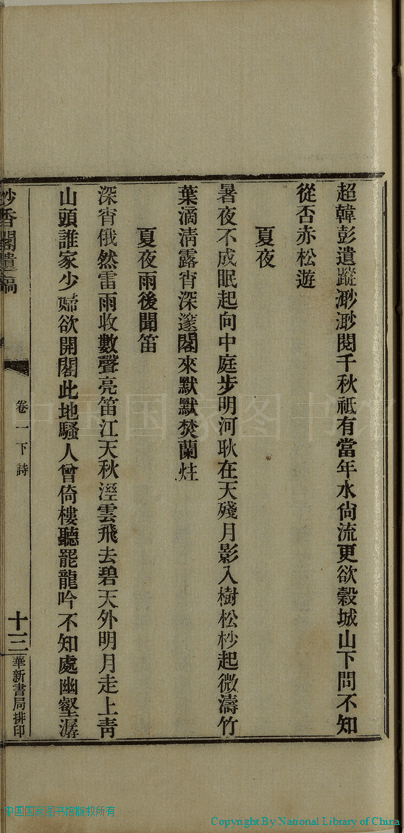 超韓彭遺蹤渺渺閱千秋祗有當年水尙流更欲穀城山下問不知
從否赤松遊
夏夜
暑夜不成眠起向中庭步明河耿在天殘月影入樹松杪起微濤竹
葉滴清露宵深邃閣來默默焚蘭炷
夏夜雨後聞笛
深宵俄然雷雨收數聲亮笛江天秋溼雲飛去碧天外明月走上靑
山頭誰家少婦欲開閣此地騷人曾倚樓聽罷龍吟不知處幽壑潺
妙香閣遺稿
卷一下詩
十三
華新書局排印
中国国家图书馆
中国国家图书馆版权所有
Copyright By National Library of China